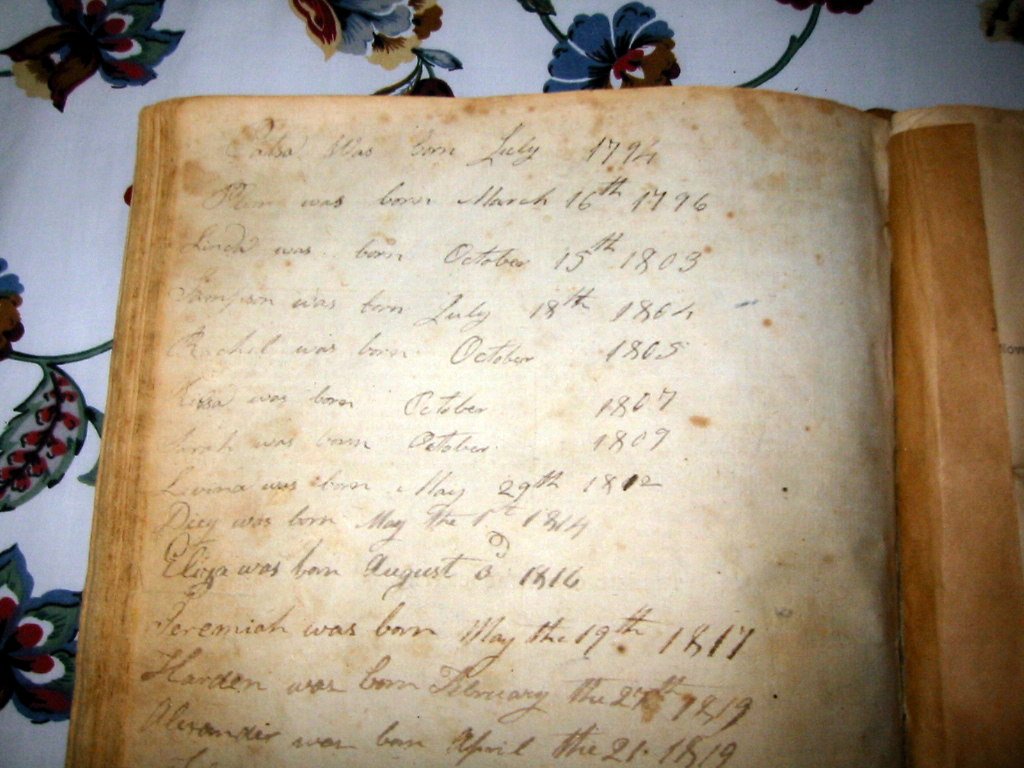 was born July 1794
was born March 16th 1796
Linda was born October 15th 1803
Sampson was born July 18th 1804
Rachel was born October 1805
was born October 1807
Sarah was born October 1809
Levina was born May 29th 1812
Dicy was born May the 1st 1814
Eliza was born August 3d 1816
Jeremiah was born May the 19th 1817
Harden was born February the 27th 1819
Alexander was born April the 21. 1819